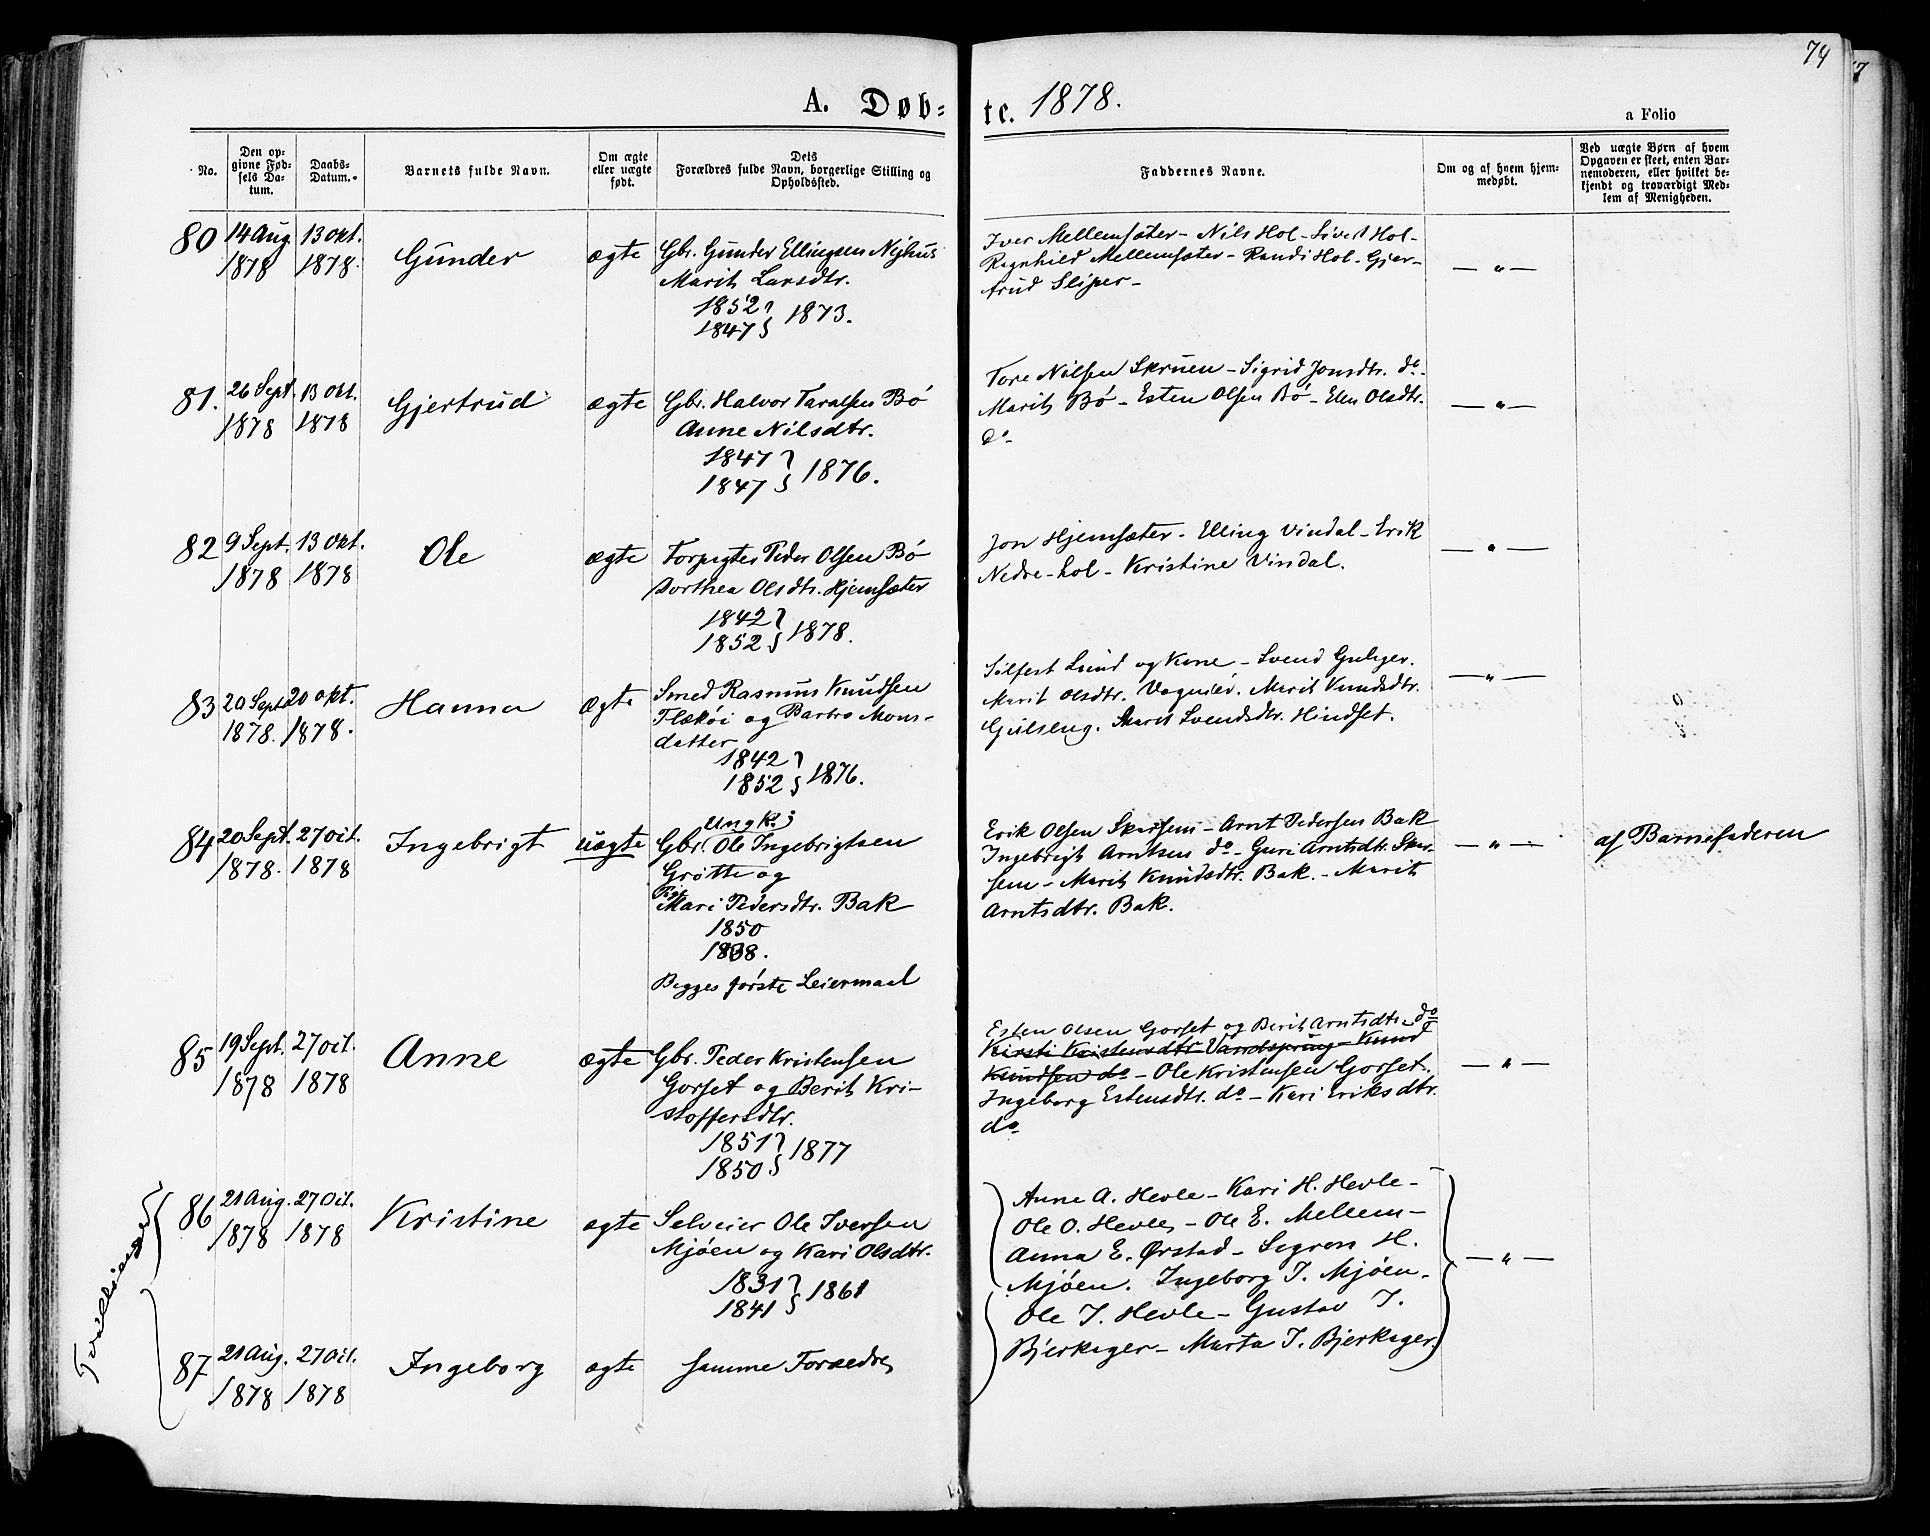 74
A. Døb=
te. 1878.
a Folio
No.
Den op-
givne Fød-
sels Da-
tum.
Daabs-
Datum.
Barnets fulde Navn.
Om ægte
eller uægte
født.
Dets
Forældres fulde Navn, borgerlige Stilling og
Opholdssted.
Faddernes Navne.
Om og af hvem hjem-
medøbt.
Ved uægte Børn af hvem
Opgaven er skeet, enten Bar-
nemoderen, eller hvilket be-
kjendt og troværdigt Med-
lem af Menigheden.
80 14 Aug. 13 Okt.
1878 1878.
Gunder
ægte
Gbr. Gunder Ellingsen Nyhus
Marit Larsdtr.
1852
1847 } 1873.
Iver Mellemsæter - Nils Hol - Sivert Hol -
Ragnhild Mellemsæter - Randi Hol - Gjer-
trud Sliper -
— " —
81. 26 Sept. 13 Okt.
1878 1878
Gjertrud
ægte
Gbr. Halvor Taralsen Bö
Anne Nilsdtr.
1847
1847 } 1876.
Tore Nilsen Skruen - Sigrid Jonsdtr. do -
Marit Bö - Esten Olsen Bö - Elen Olsdtr.
do -
— " —
82 9 Sept. 13 Okt.
1878 1878
Ole
ægte
Forpagter Peder Olsen Bö
Dorthea Olsdtr. Hjemsæter
1842
1852 } 1878.
Jon Hjemsæter - Elling Vindal - Erik
Nedre-hol - Kristine Vindal.
— " —
83 20 Sept. 20 Okt.
1878. 1878.
Hanna
ægte
Smed Rasmus Knudsen
Flæköi og Barbro Mons-
datter
1842
1852 } 1876.
Sölfest Lund og Kone - Svend
Marit Olsdtr. Marit Knudsdtr.
Gulseng. Marit Svendsdtr. Hindset.
— " —
84 20 Sept. 27 Oct.
1878. 1878
Ingebrigt
uægte
Ungk.
Gbr. Ole Ingebrigtsen
Grötte og
Pige
Mari Pedersdtr. Bak
1850
1838.
Begges förste Leiermaal
Erik Olsen Skarsem - Arnt Pedersen Bak
Ingebrigt Arntsen do - Guri Arntsdtr. Skar-
sem - Marit Knudsdtr. Bak. - Marit
Arntsdtr. Bak.
— " —
af Barnefaderen
85 19 Sept. 27 Oct.
1878 1878
Anne
ægte
Gbr. Peder Kristensen
Gorset og Berit Kri-
stoffersdtr.
1851
1850 } 1877
Esten Olsen Gorset og Berit Arntsdtr. do
Kirsti Kristensdtr. Vandsprung - Knud
Knudsen do - Ole Kristensen Gorset -
Ingeborg Estensdtr. do - Kari Eriksdtr.
do.
— " —
Tvillinger
86 21 Aug. 27 Oct.
1878 1878
Kristine
ægte
Selveier Ole Iversen
Mjöen og Kari Olsdtr.
1831
1841 } 1861
Anne A. Hevle - Kari H. Hevle -
Ole O. Hevle - Ole E. Mellem -
Anna E. Ørstad - Segren H.
Mjöen. Ingeborg I. Mjöen.
Ole J. Hevle - Gustav J.
Bjerkager - Marta J. Bjerkager.
— " —
87 21 Aug. 27 Oct.
1878 1878
Ingeborg
ægte
samme Forældre